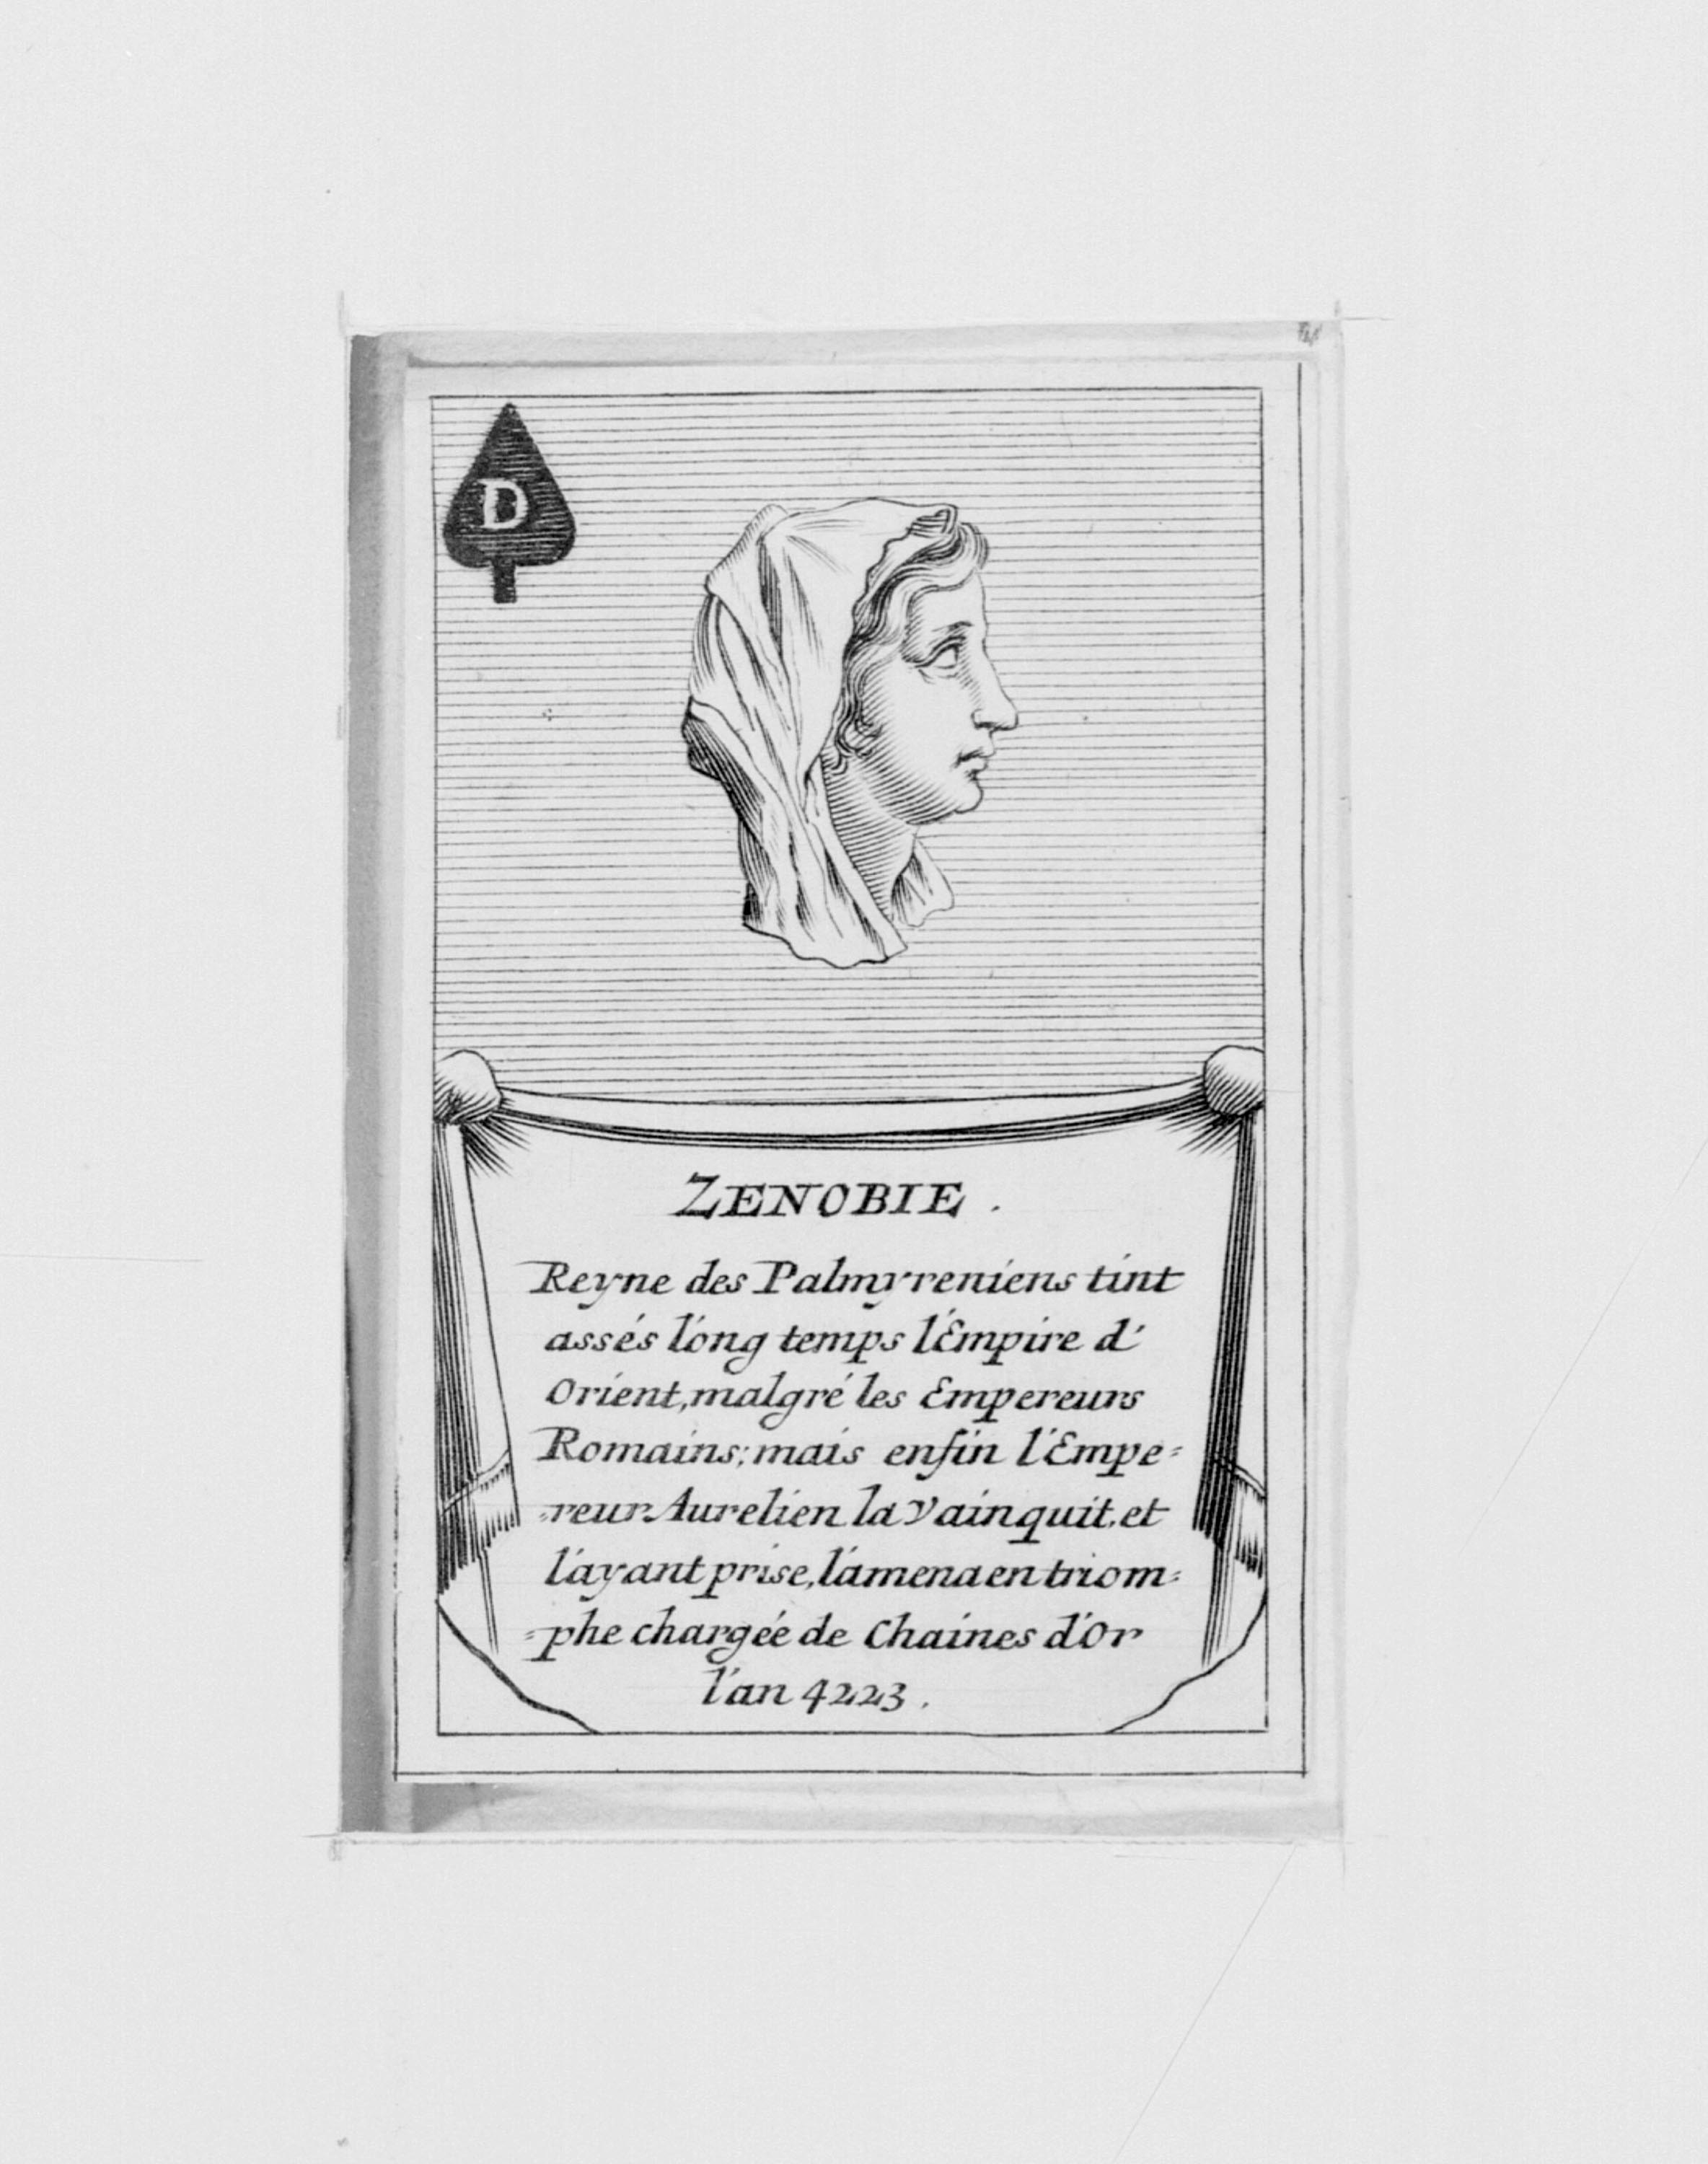 D
ZENOBIE.
Reyne des Palmyreniens tint
assés long temps l'Empire d'
Orient, malgré les Empereurs
Romains; mais enfin l'Empe=
=reur Aurelien la Vainquit, et
l'ayant prise, l'amena en triom=
=phe chargée de Chaines d'Or
l'an 4223.